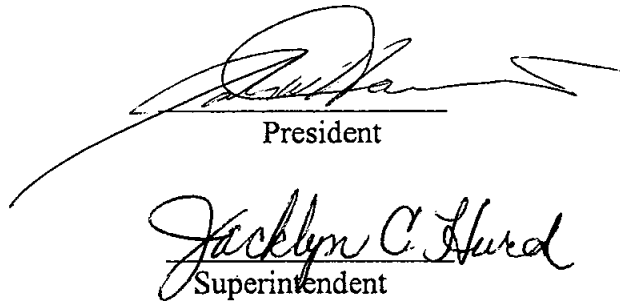 President
Jacklyn C. Hurd
Superintendent